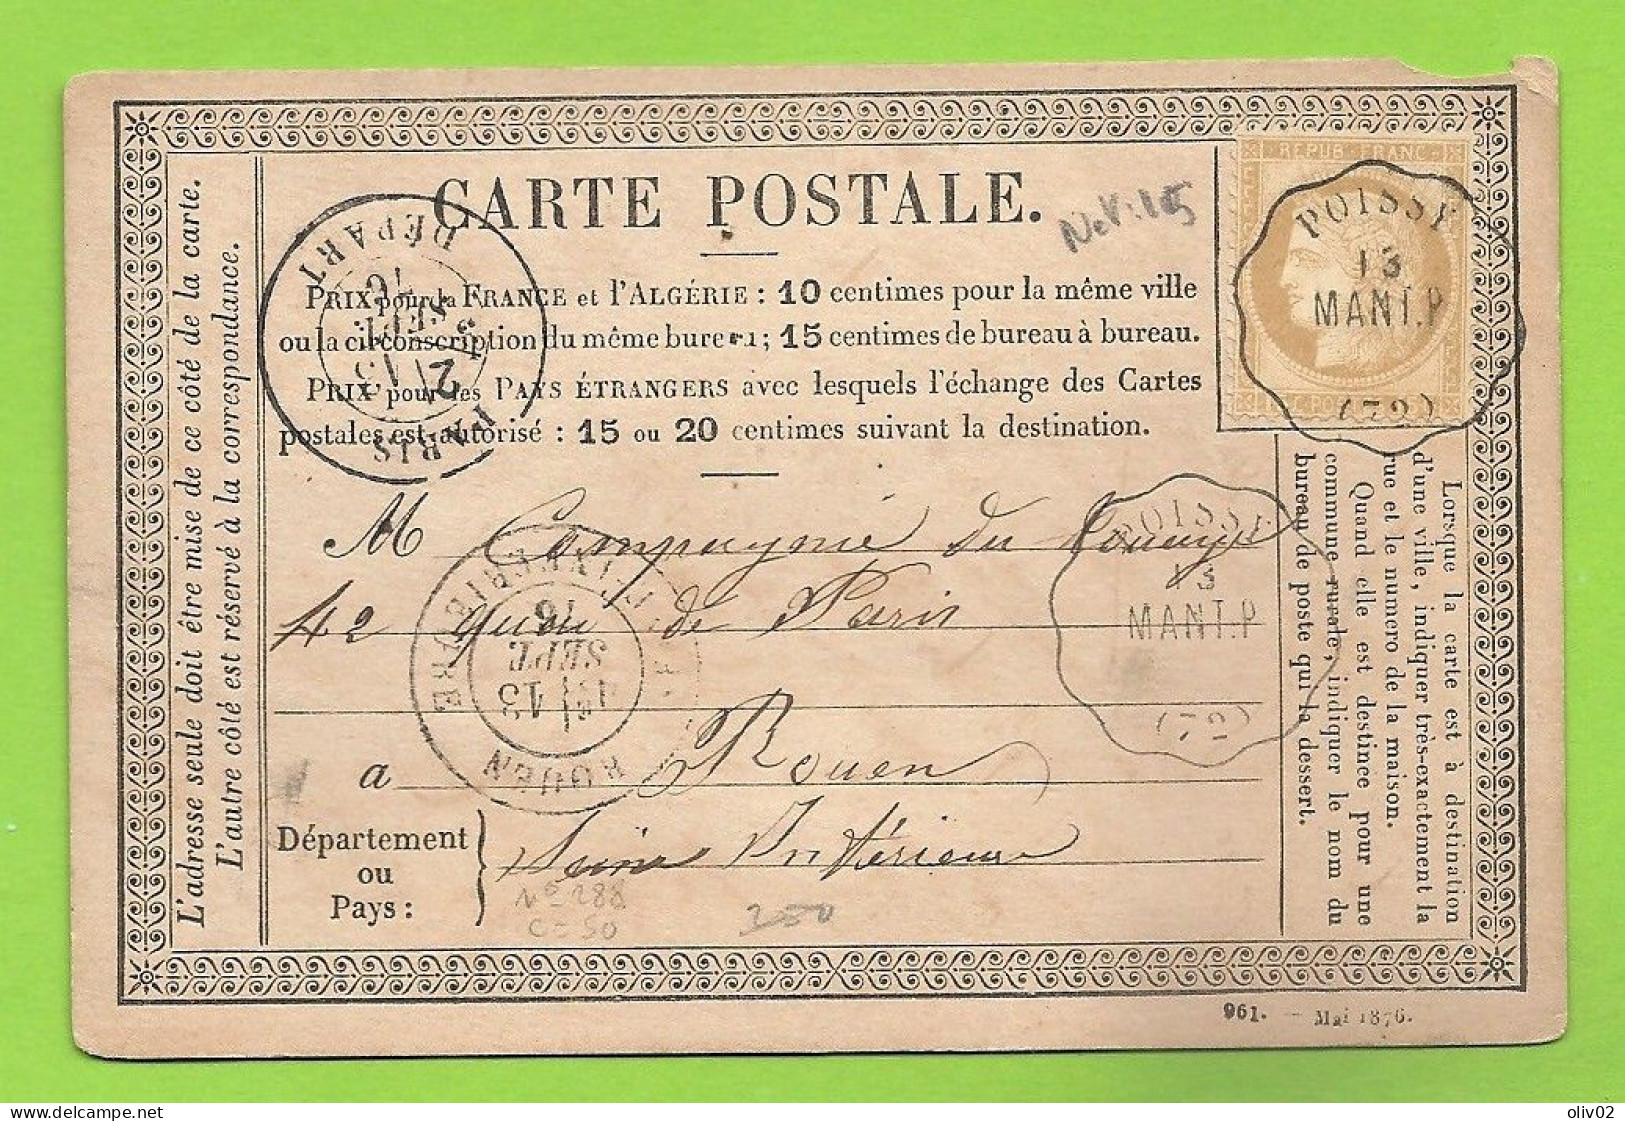 CARTE POSTALE.
PRIX pour la FRANCE et l'ALGÉRIE : 10 centimes pour la même ville
ou la circonscription du même bureau ; 15 centimes de bureau à bureau.
PRIX pour les PAYS ÉTRANGERS avec lesquels l'échange des Cartes
postales est autorisé : 15 ou 20 centimes suivant la destination.
L'adresse seule doit être mise de ce côté de la carte.
L'autre côté est réservé à la correspondance.
REPUB FRANC
POISSY
13
MANT.P
(72)
DÉPART
76
SEPT
13
PARIS
M Compagnie du
42 quai de Paris
a Rouen
Département
ou
Pays :
Seine Inférieure
POISSY
13
MANT.P
(72)
76
SEPT
13
ROUEN
Lorsque la carte est à destination
d'une ville, indiquer très-exactement la
rue et le numero de la maison.
Quand elle est destinée pour une
commune rurale, indiquer le nom du
bureau de poste qui la dessert.
No 288
C=50
961. — Mai 1876.
oliv02